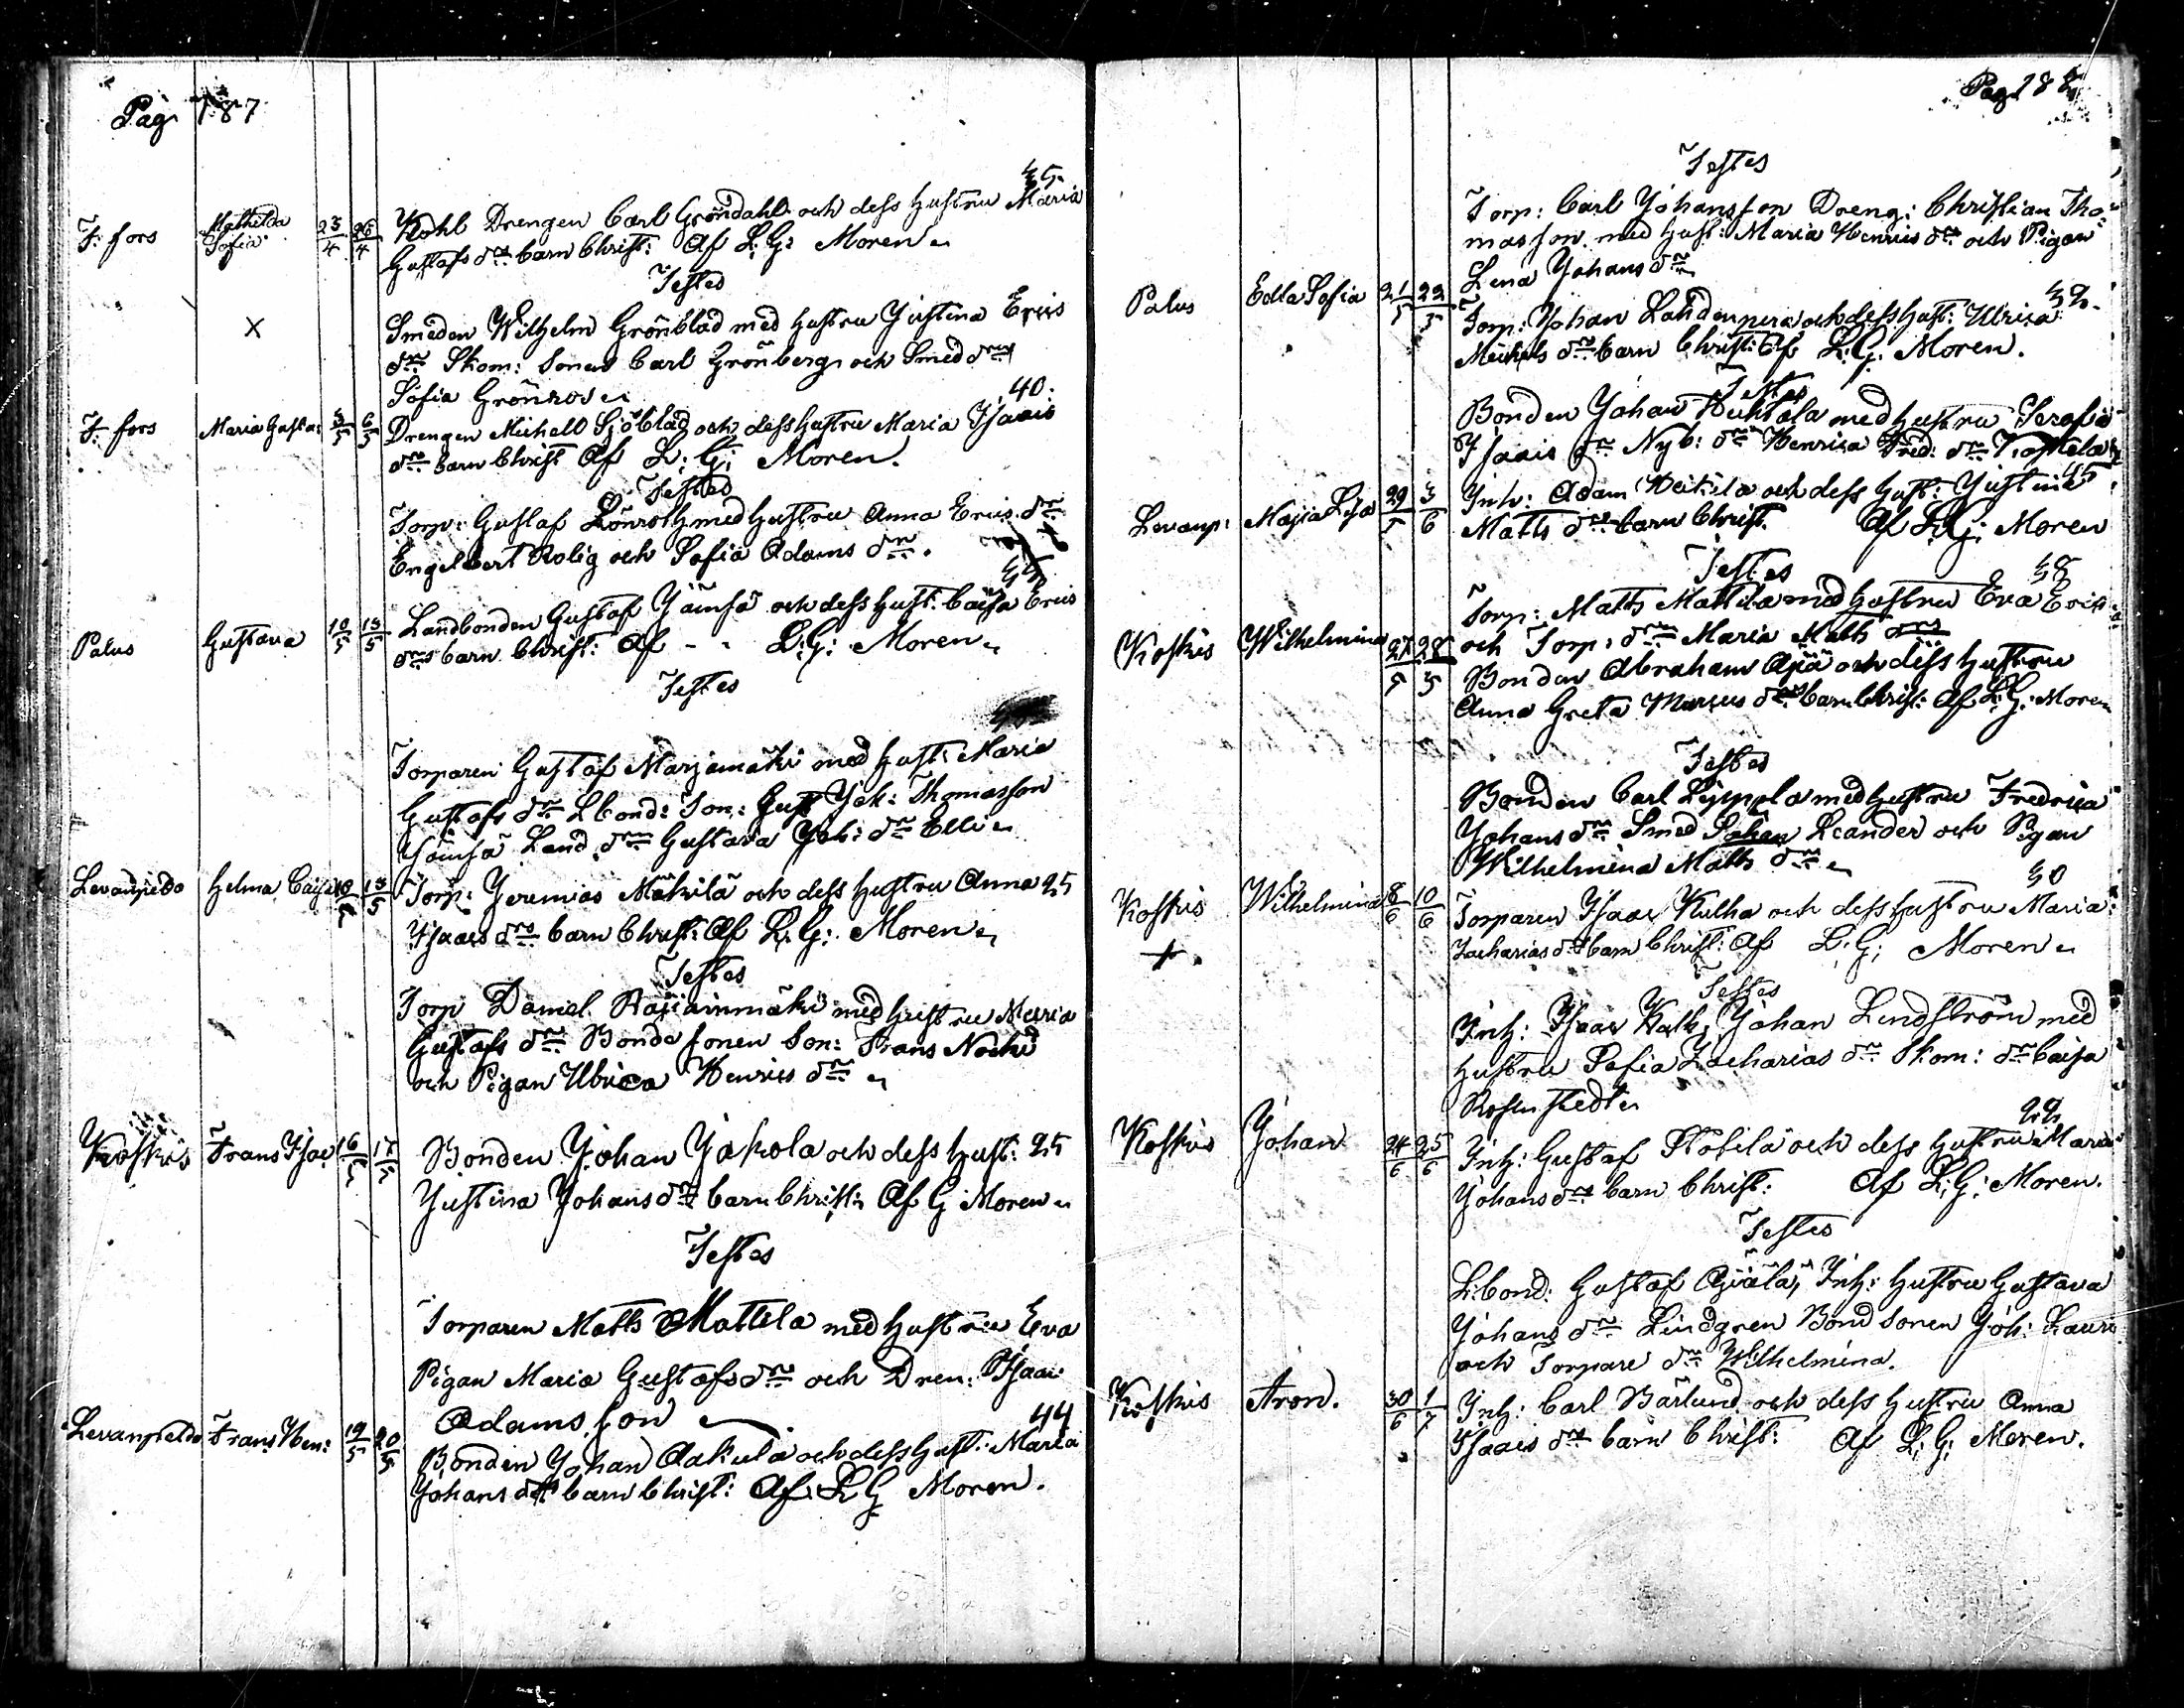 Pag. 187
F: fors Mathilda Sofia 23/4 26/4 Kohl Drengen Carl Gröndahl och dess hustru Maria
Gustafs dr barn Christ: Af L: G: Moren
Testes
Smeden Wilhelm Grönblad med hustru Justina Erics
dr Skom: Sonen Carl Grönberg och Smed dr
Sofia Grönros
40.
F: fors Maria Gusta: 3/5 6/5 Drengen Michell Sjöblad och dess hustru Maria Isaais
dr barn Christ Af L: G: Moren.
Testes
Torp: Gustaf Lönroth med hustru Anna Erics dr
Engelbert Rolig och Sofia Adams dr.
Palus Gustava 10/5 13/5 Landbonden Gustaf Jämsä och dess hust: Caisa Erics
drs barn Christ: Af - - L: G: Moren
Testes
Torparen Gustaf Marjamäki med hust: Maria
Gustafs dr Lbond: Son: Gust Joh: Thomasson
Jämsä Land dr Gustava Joh: dr Elli
Levanpeldo Helma Caisa 10/5 13/5 Torp: Jeremias Mäkilä och dess hustru Anna 25
Isaacs drs barn Christ: Af L: G: Moren
Testes
Torp Daniel Rajiainmäki med hustru Maria
Gustafs dr Bonde sonen Son: Frans Nocki
och Pigan Ulrica Henrics dr
Koskis Frans Isac 16/5 17/5 Bonden Johan Jakola och dess hust: 25
Justina Johans dr barn Christ: Af G Moren
Testes
Torparen Matts Mattila med hustru Eva
Pigan Maria Gustafs dr och Dren: Isaac
Adams son
44
Levanpeldo Frans Hen: 19/5 20/5 Bonden Johan Aakula och dess hust: Maria
Johans dr barn Christ: Af L G Moren.
Pag. 188
Testes
Torp: Carl Johansson Dreng: Christian Tho-
masson med hust: Maria Henrics dr och Pigan
Lena Johans dr
Palus Edla Sofia 21/5 22/5 Torp: Johan Lahdenpera och dess hust: Ulrica
Michels dr barn Christ: Af L: G: Moren.
Testes
Bonden Johan Huhtala med hustru Serafia
Isaais dr Nyb: dr Henrica Fred: dr Koskela
45
Levanp: Majia Lisa 29/5 3/6 Inh: Adam Heikila och dess hust: Justina
Matts dr barn Christ. Af L: G: Moren
Testes
Torp: Matts Mattila med hustru Eva Erics
och Torp: dr Maria Matts dr
Koskis Wilhelmina 27/5 28/5 Bonden Abraham Ajiä och dess hustru
Anna Greta Marcus dr barn Christ: Af L: G: Moren
Testes
Bonden Carl Lyypola med hustru Fredrica
Johans dr Smed Johan Leander och Pigan
Wilhelmina Matts dr
30
Koskis Wilhelmina 8/6 10/6 Torparen Isaac Kulha och dess hustru Maria
Zacharias dr barn Christ: Af L: G: Moren
Testes
Inh: Isaac Kulh, Johan Lindström med
hustru Sofia Zacharias dr Skom: dr Caisa
Rosenstedt
Koskis Johan 24/6 25/6 Inh: Gustaf och dess hustru Maria
Johans dr barn Christ: Af L: G: Moren.
Testes
Lbond: Gustaf Ajiälä, Inh: hustru Gustava
Johans dr Lindgren Bond Sonen Joh: Lauri
och Torpare dr Wilhelmina.
Koskis Aron. 30/6 1/7 Inh: Carl Bärlund och dess hustru Anna
Isaacs dr barn Christ: Af L: G: Moren.